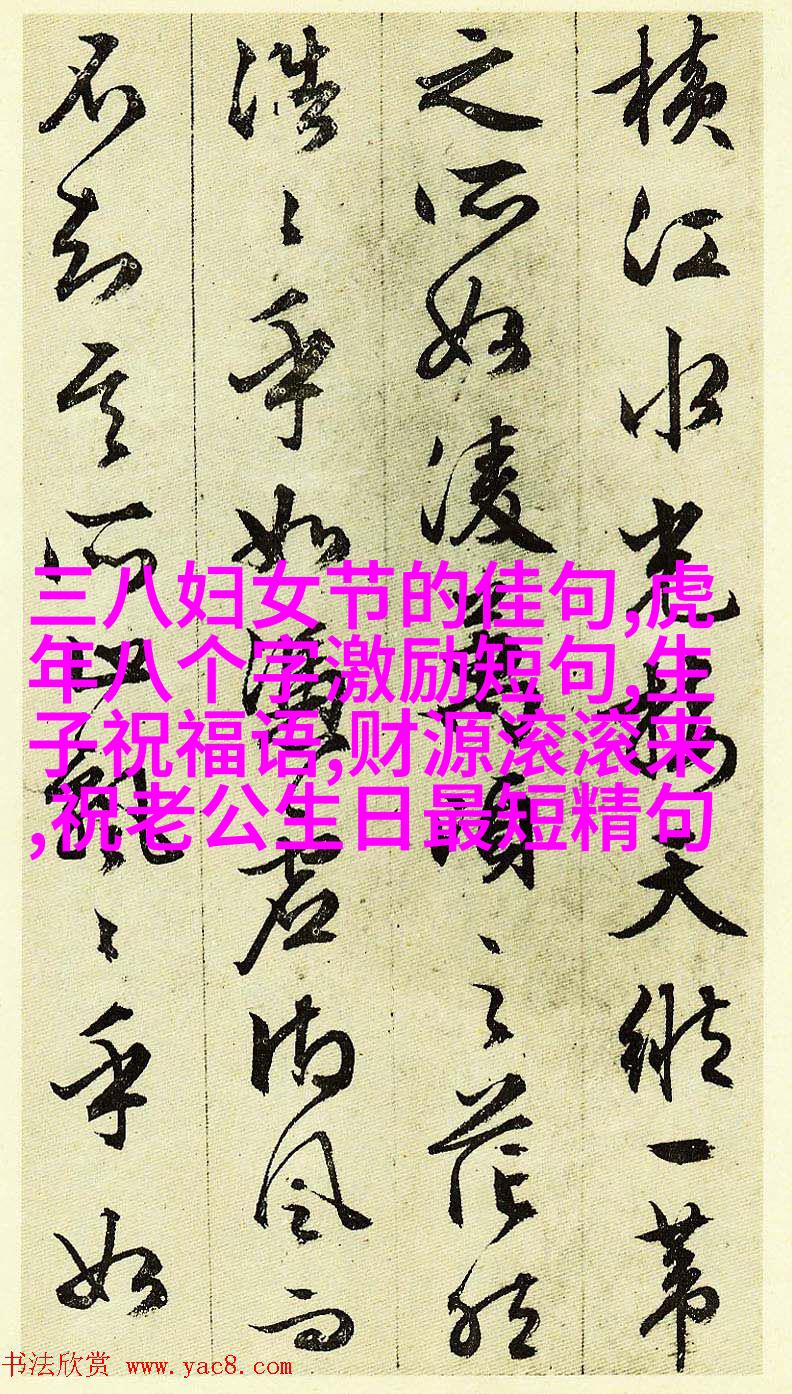 橫江水光接天縱一葦
之所如凌萬頃之茫然
浩〻乎如馮虛御風而
不知其所止飄〻乎如
三八妇女节的佳句,虎
年八个字激励短句,生
子祝福语,财源滚滚来
,祝老公生日最短精句
书法欣赏 www.yac8.com